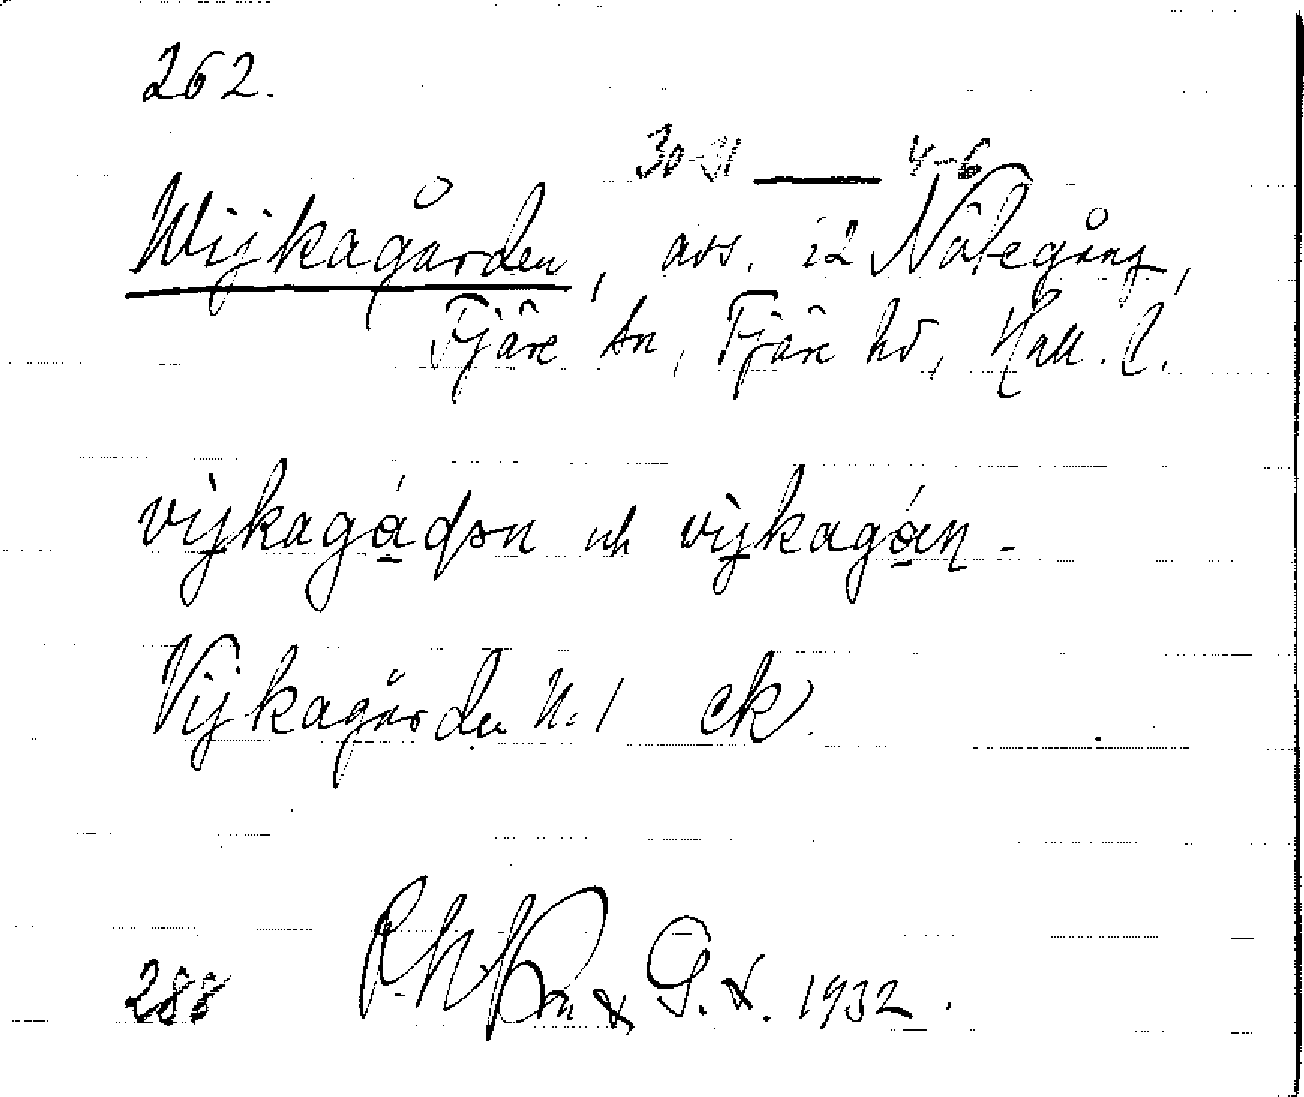 262.
30-31 — 4-6
Wijkagården, avs. i 2 Nötegång,
Fjäre sn, Fjäre hd, Hall. l.
vijkagádɘn och vijkagán -
Vijkagården N:1 ek.
288 G. 1932.